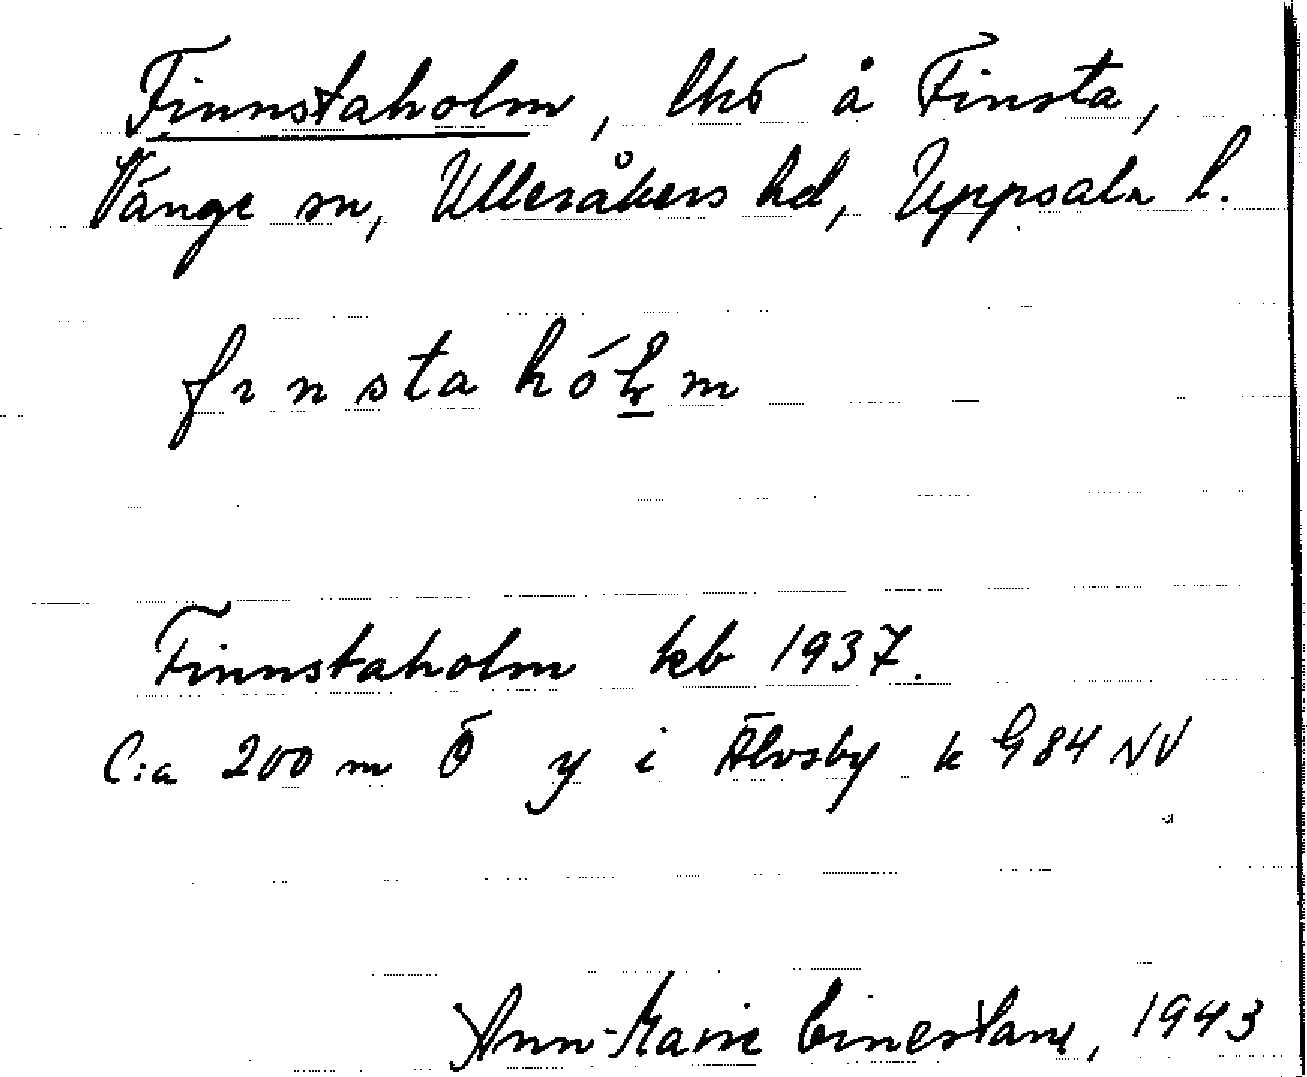 Finnstaholm, lhö å Finsta,
Vänge sn, Ulleråkers hd, Uppsala l.
finstahó m
Finnstaholm kb 1937.
C:a 200 m Ö y i Älvsby k 984 NV
Ann-Marie , 1943